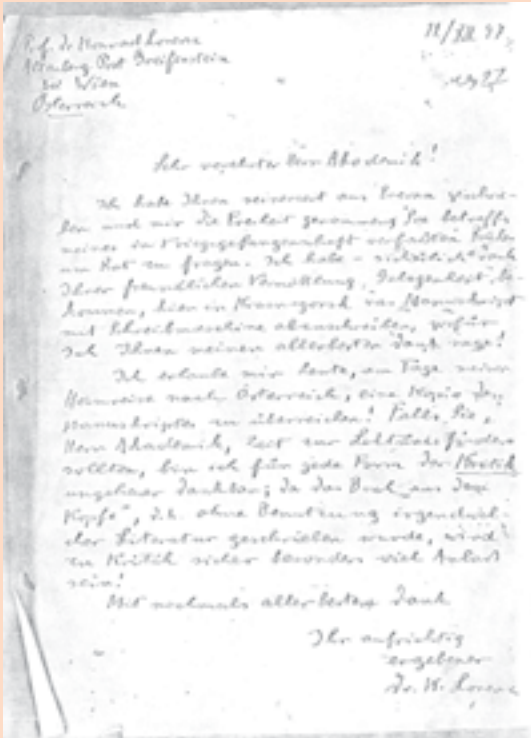 Prof. Dr. Konrad Lorenz
Altenberg Post Greifenstein
bei Wien
Österreich
12/XII 47.
Sehr verehrter Herr Akademik!
Ich habe Ihnen seinerzeit aus Erevan geschrie-
ben und mir die Freiheit genommen, Sie betreffs
meines in Kriegsgefangenschaft verfaßten Buches
um Rat zu fragen. Ich habe – sichtlich nach
Ihrer freundlichen Vermittlung, Gelegenheit be-
kommen, hier in Krasnogorsk das Manuskript
mit Schreibmaschine abzuschreiben, wofür
ich Ihnen meinen allerbesten Dank sage!
Ich erlaube mir heute, am Tage meiner
Heimreise nach Österreich, eine Kopie des
Manuskriptes zu überreichen! Falls Sie,
Herr Akademik, Zeit zur Lektüre finden
sollten, bin ich für jede Form der Kritik
ungeheuer dankbar; da das Buch „aus dem
Kopfe“, d.h. ohne Benutzung irgendwel-
cher Literatur geschrieben wurde, wird
zu Kritik sicher besonders viel Anlaß
sein!
Mit nochmals allerbestem Dank
Ihr aufrichtig
ergebener
Dr. K. Lorenz